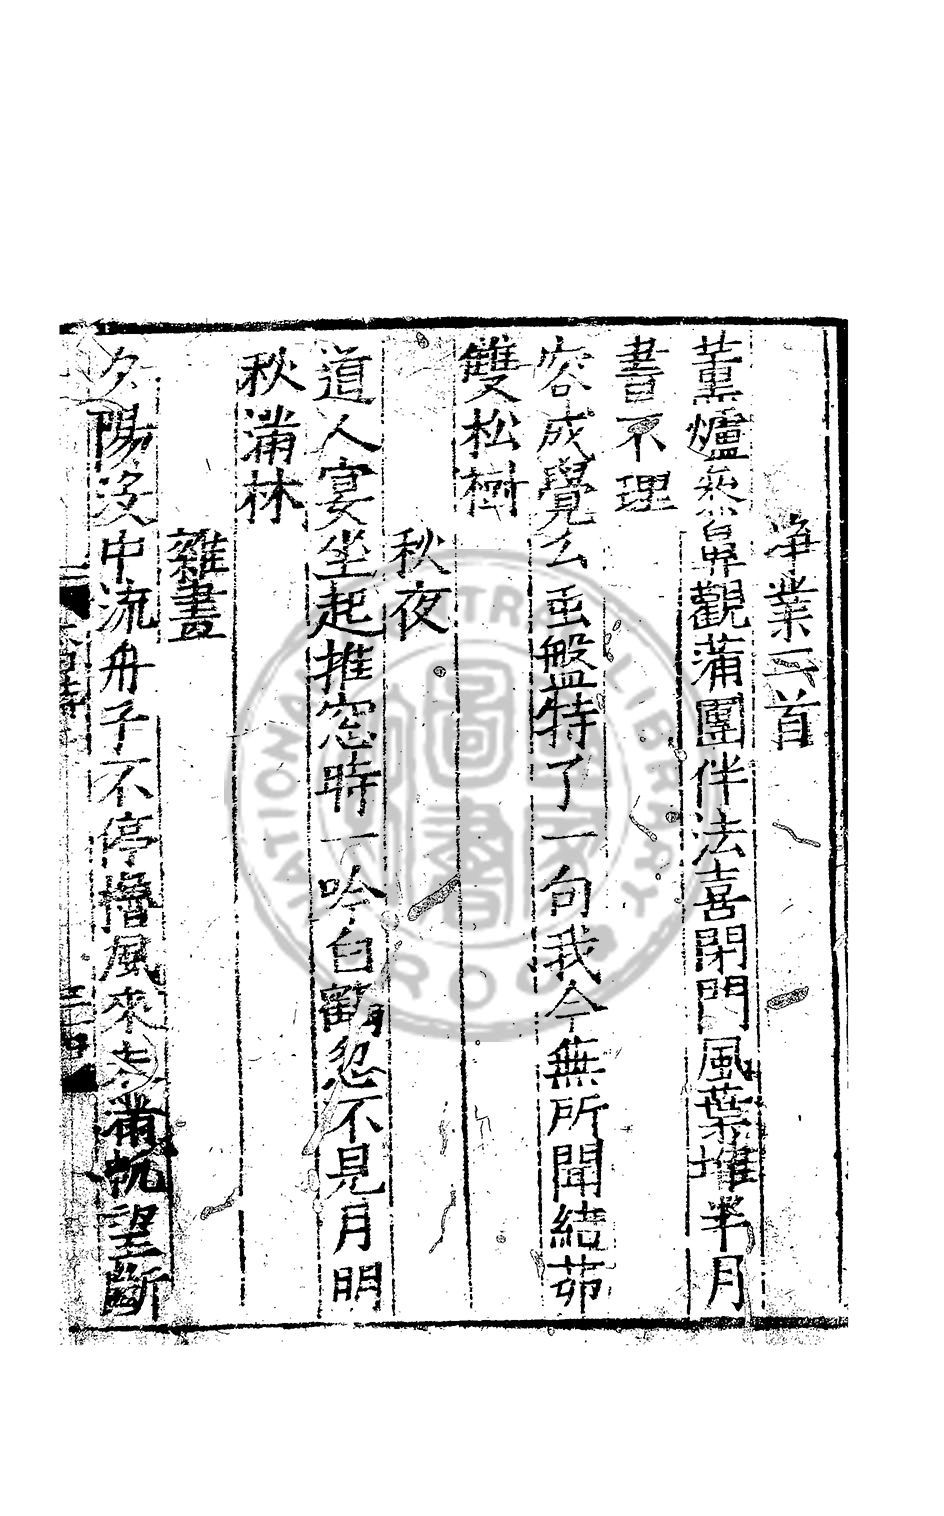 净業二首
薰爐叅鼻觀蒲團伴法喜閉門風葉堆半月
書不理
容成覺么䖝盤特了一句我今無所聞結茆
雙松樹
秋夜
道人宴坐起推窓時一吟白鸛忽不見月明
秋滿林
雜畫
夕陽没中流舟子不停櫓風來滿帆望斷
NATIONAL CENTRAL LIBRARY R.O.C.